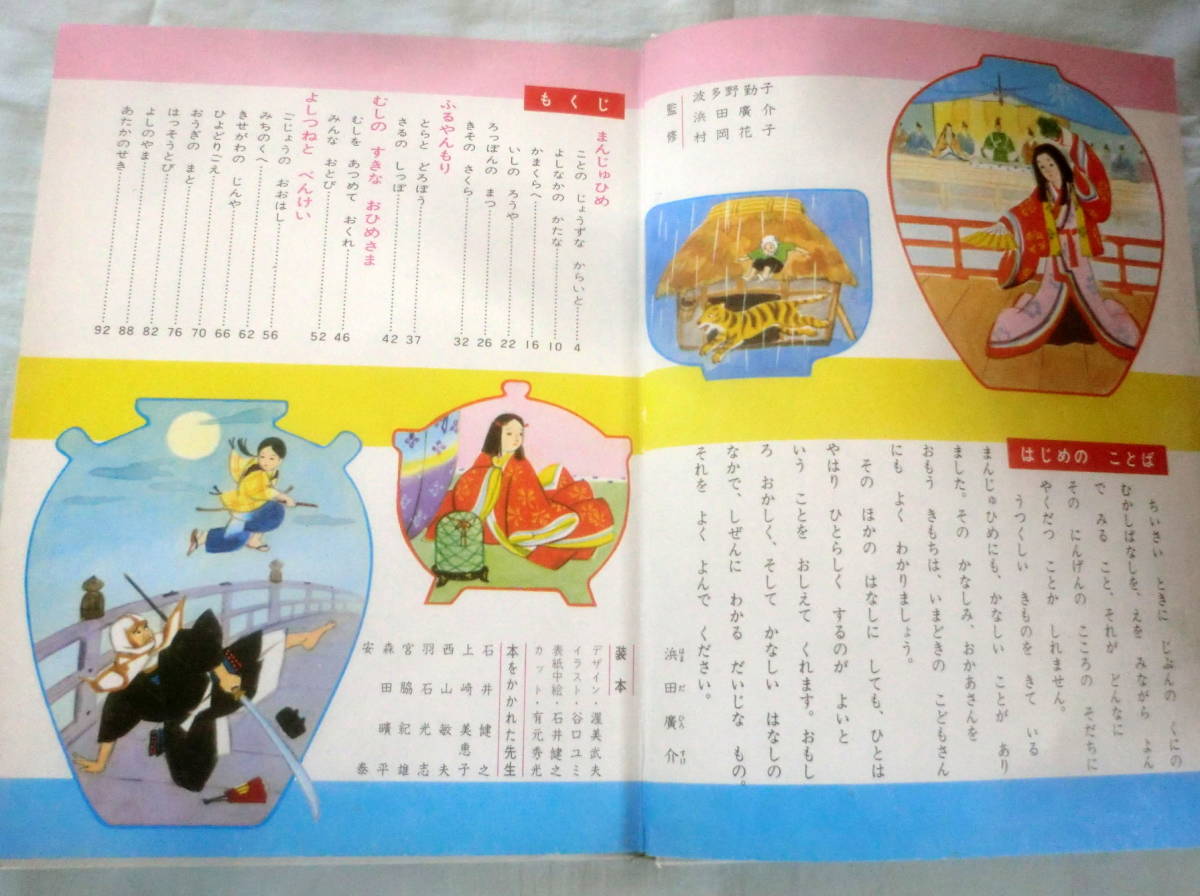 監修
波多野勤子
浜田廣介
村岡花子
はじめの ことば
ちいさい ときに じぶんの くにの
むかしばなしを、えを みながら よん
で みる こと、それが どんなに
その にんげんの こころの そだちに
やくだつ ことか しれません。
うつくしい きものを きて いる
まんじゅひめにも、かなしい ことが あり
ました。その かなしみ、おかあさんを
おもう きもちは、いまどきの こどもさん
にも よく わかりましょう。
その ほかの はなしに しても、ひとは
やはり ひとらしく するのが よいと
いう ことを おしえて くれます。おもし
ろ おかしく、そして かなしい はなしの
なかで、しぜんに わかる だいじな もの。
それを よく よんで ください。
浜田廣介
はまだひろすけ
もくじ
まんじゅひめ
ことの じょうずな からいと……4
よしなかの かたな……10
かまくらへ……16
いしの ろうや……22
ろっぽんの まつ……26
きその さくら……32
ふるやんもり
とらと どろぼう……37
さるの しっぽ……42
むしの すきな おひめさま
むしを あつめて おくれ……46
みんな おとび……52
よしつねと べんけい
ごじょうの おおはし……56
みちのくへ……62
きせがわの じんや……66
ひよどりごえ……70
おうぎの まと……76
はっそうとび……82
よしのやま……88
あたかのせき……92
装本
デザイン・渥美武夫
イラスト・谷口ユミ
表紙中絵・石井健之
カット・有元秀光
本をかかれた先生
石井健之
上崎美恵子
西山敏夫
羽石光志
宮脇紀雄
森田曠平
安泰